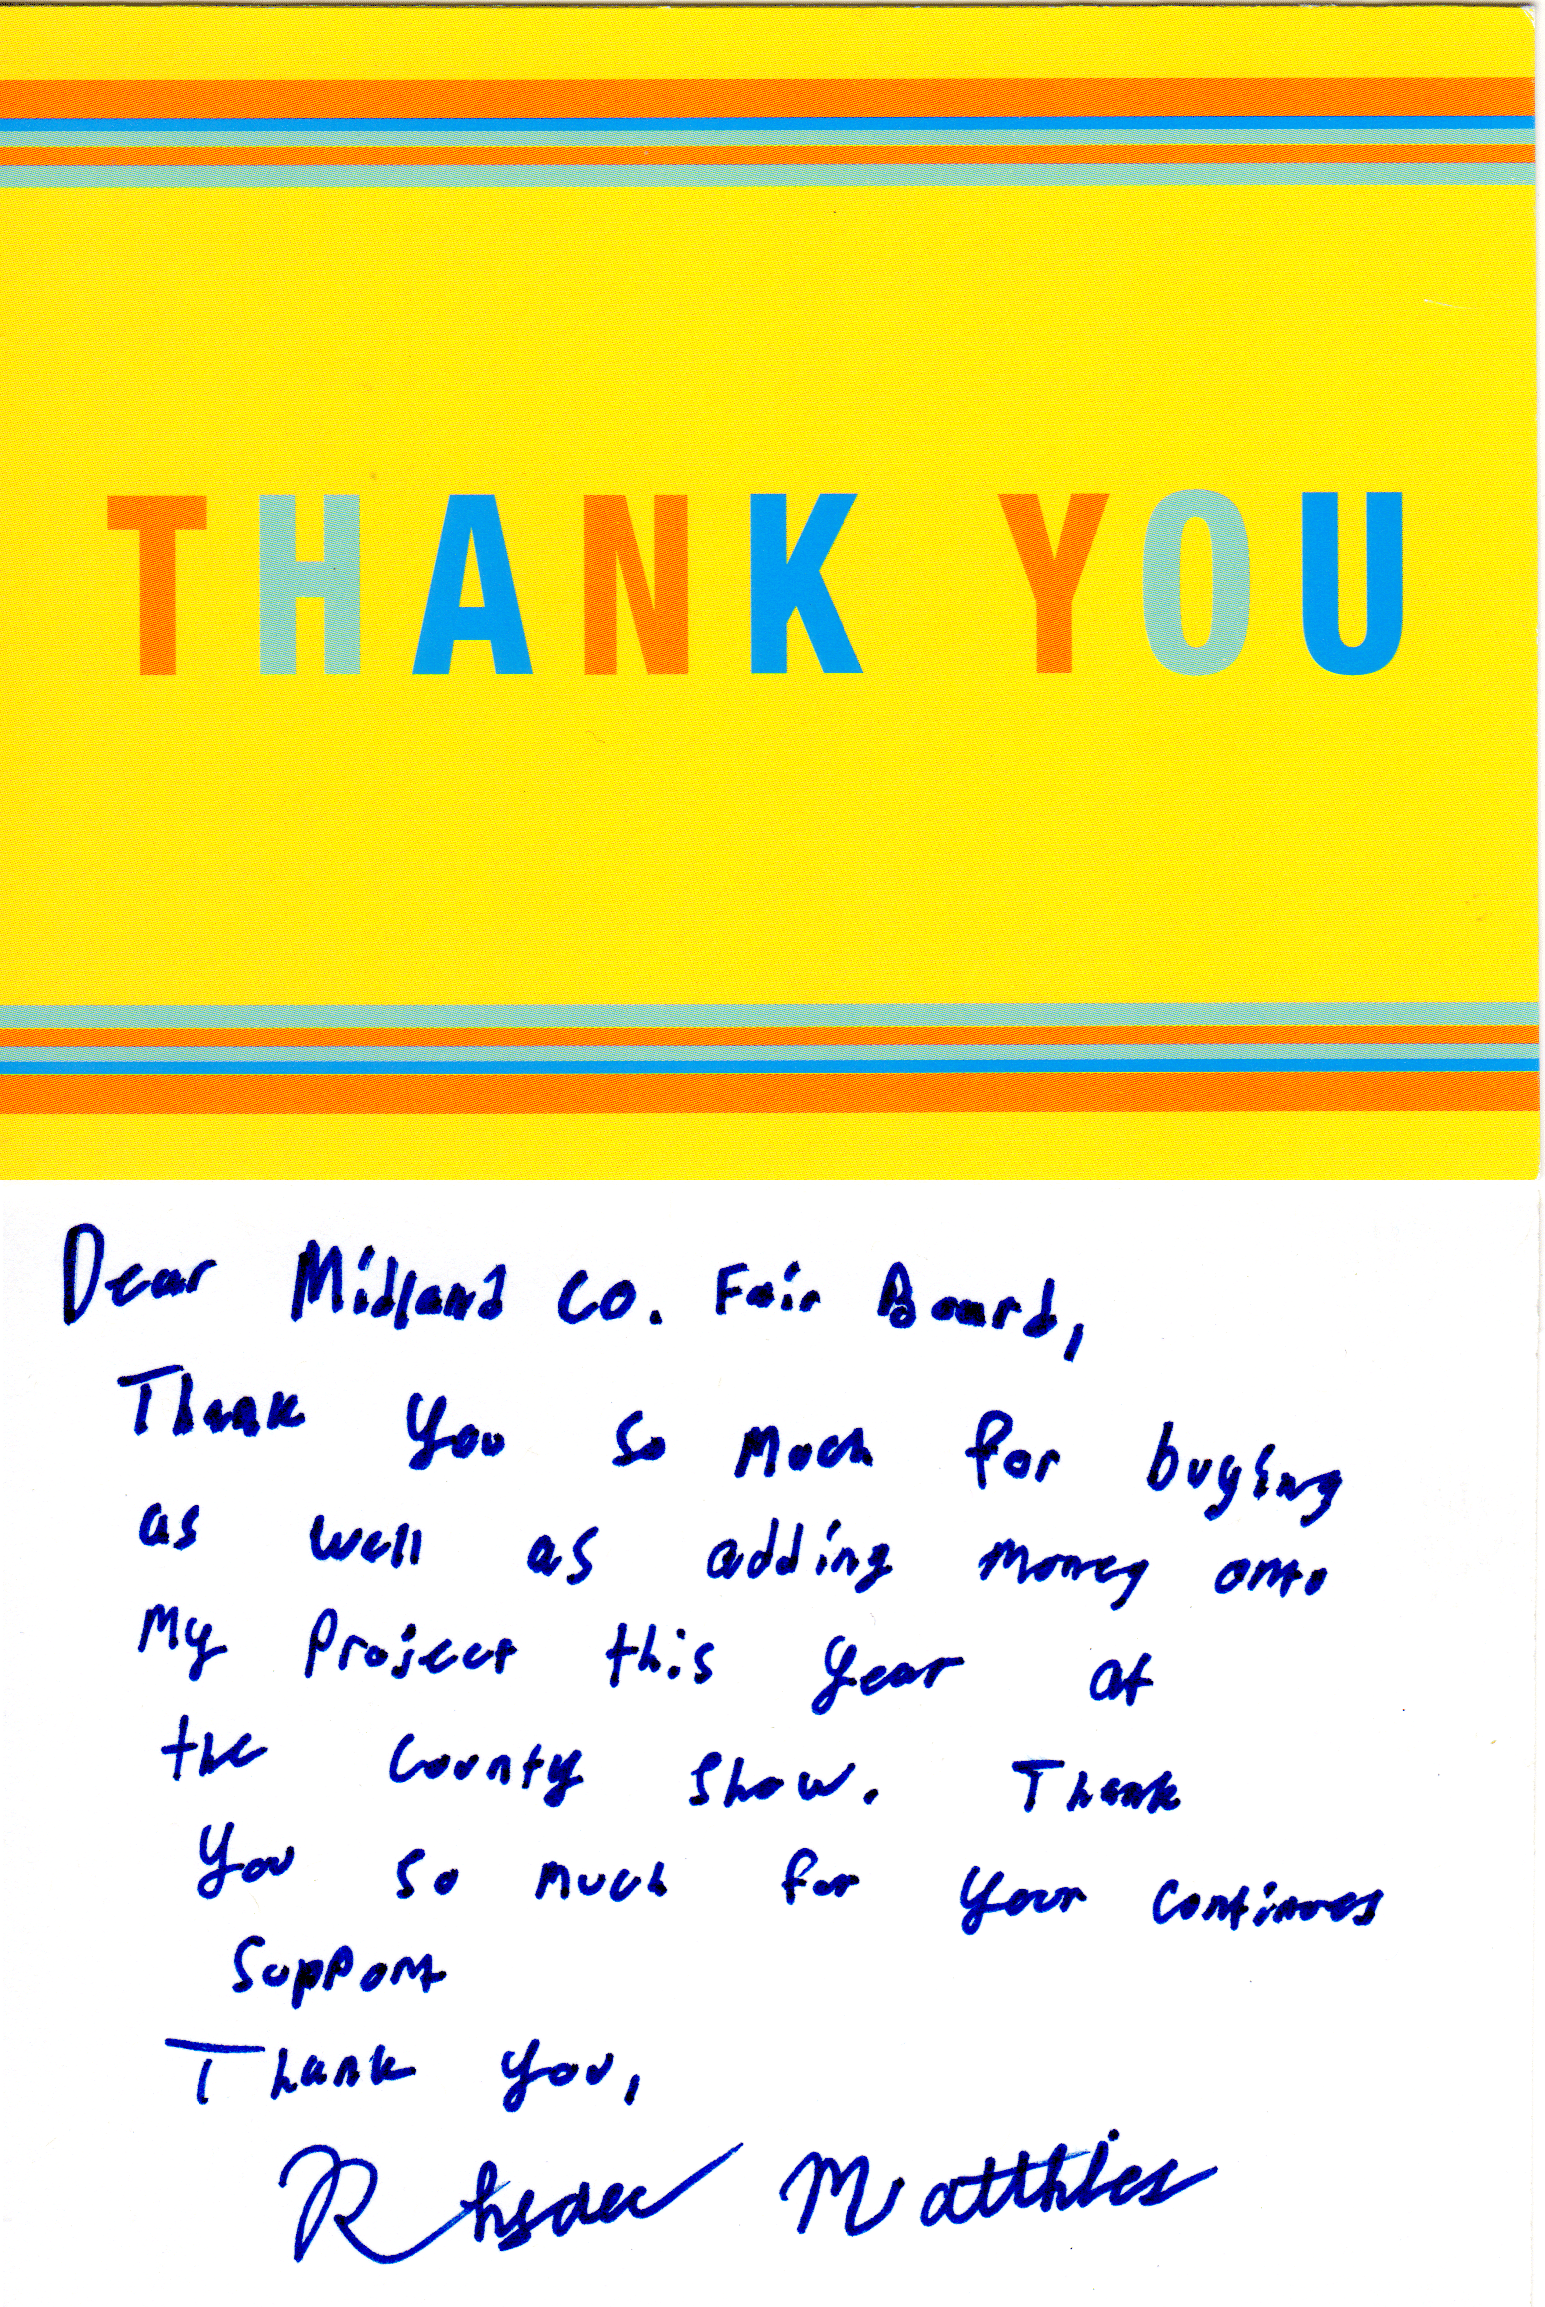 THANK YOU
Dear Midland Co. Fair Board,
Thank you so much for buying
as well as adding money onto
my project this year at
the County Show. Thank
you so much for your continues
support
Thank you,
Matthies